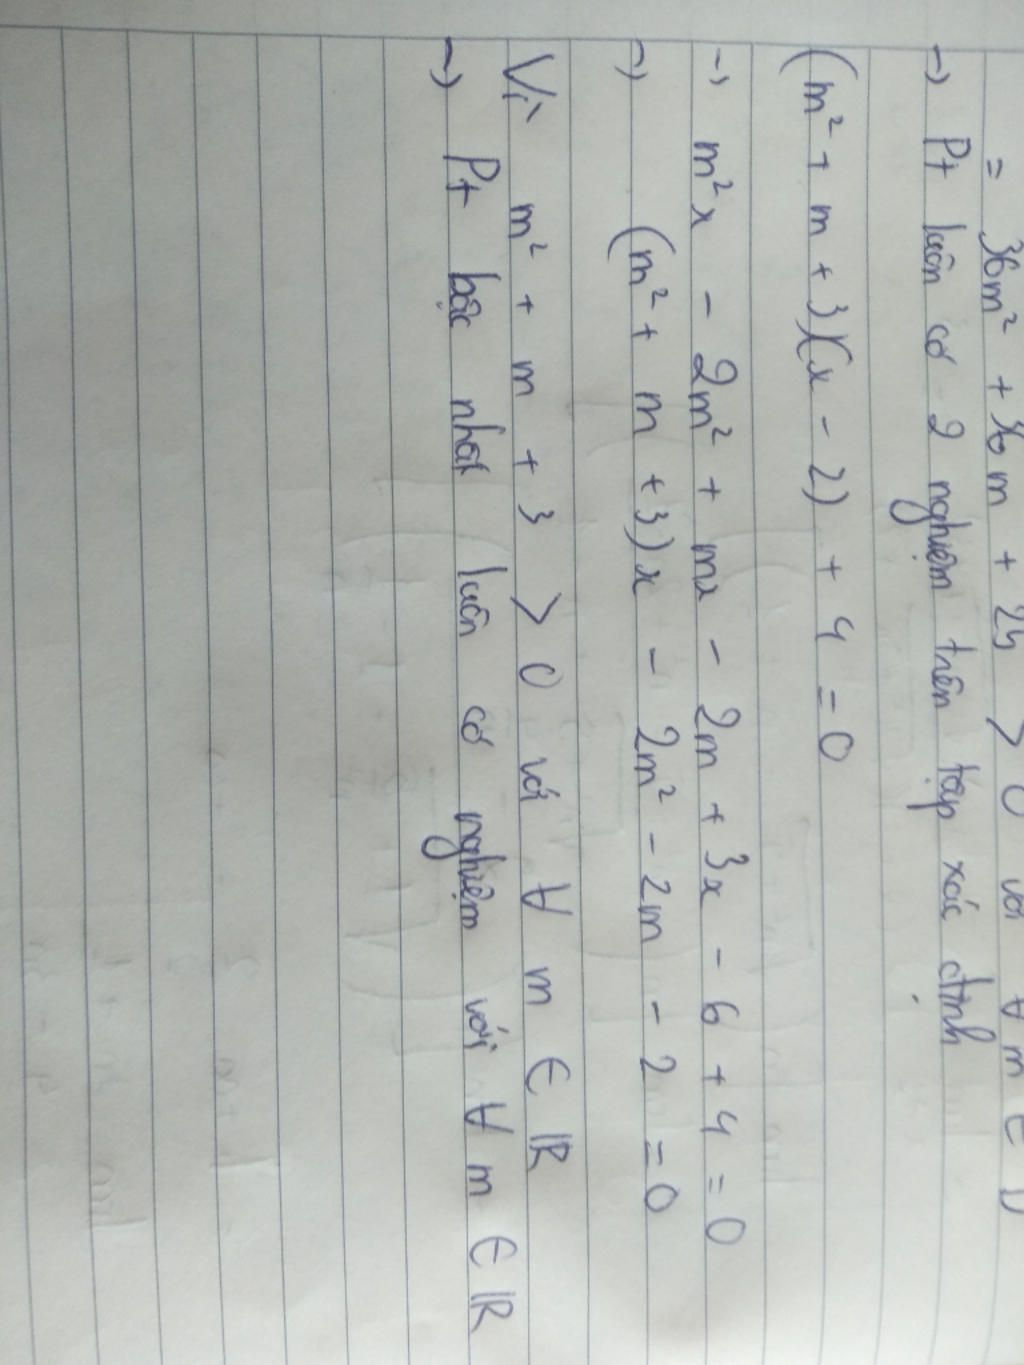 = 36m² + 36m + 25 > 0 với ∀ m ∈ D
→ Pt luôn có 2 nghiệm trên tập xác định
(m² + m + 3)(x - 2) + 4 = 0
→ m²x - 2m² + mx - 2m + 3x - 6 + 4 = 0
→ (m² + m + 3)x - 2m² - 2m - 2 = 0
Vì m² + m + 3 > 0 với ∀ m ∈ ℝ
→ Pt bậc nhất luôn có nghiệm với ∀ m ∈ ℝ